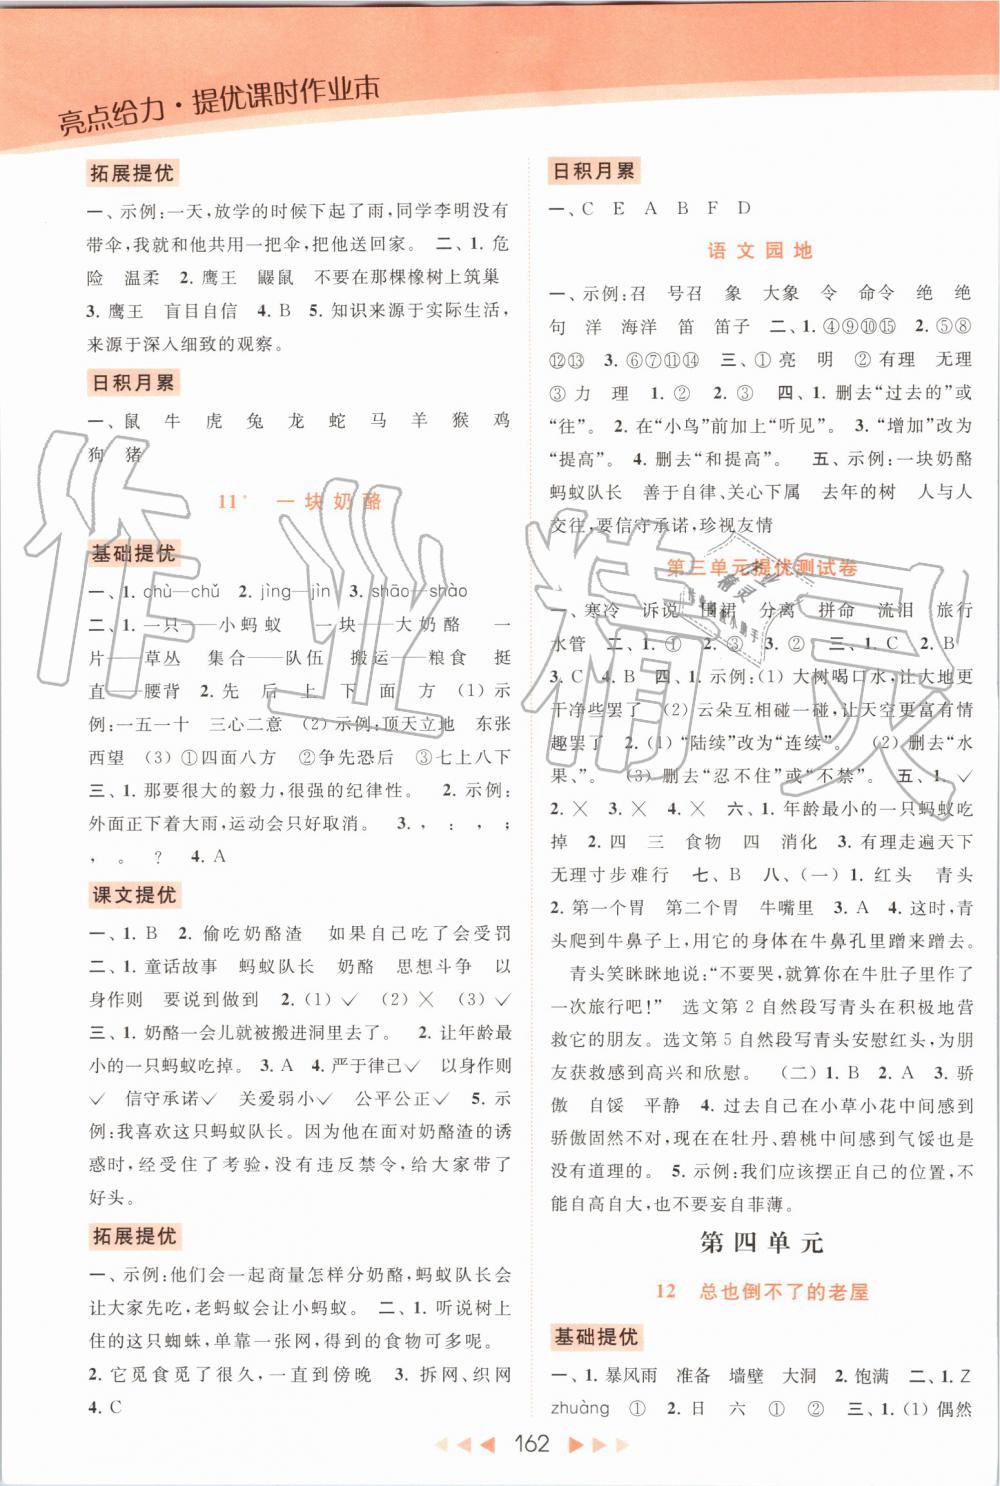 亮点给力·提优课时作业本
拓展提优
一、示例:一天,放学的时候下起了雨,同学李明没有
带伞,我就和他共用一把伞,把他送回家。 二、1. 危
险 温柔 2. 鹰王 鼹鼠 不要在那棵橡树上筑巢
3. 鹰王 盲目自信 4. B 5. 知识来源于实际生活,
来源于深入细致的观察。
日积月累
一、鼠 牛 虎 兔 龙 蛇 马 羊 猴 鸡
狗 猪
11* 一块奶酪
基础提优
一、1. chù—chǔ 2. jìng—jìn 3. shāo—shào
二、1. 一只——小蚂蚁 一块——大奶酪 一
片——草丛 集合——队伍 搬运——粮食 挺
直——腰背 2. 先 后 上 下 面 方 (1) 示
例:一五一十 三心二意 (2) 示例:顶天立地 东张
西望 (3) ①四面八方 ②争先恐后 ③七上八下
三、1. 那要很大的毅力,很强的纪律性。 2. 示例:
外面正下着大雨,运动会只好取消。 3. , : , ;
, 。 ? 4. A
课文提优
一、1. B 2. 偷吃奶酪渣 如果自己吃了会受罚
二、1. 童话故事 蚂蚁队长 奶酪 思想斗争 以
身作则 要说到做到 2. (1) ✓ (2) ✕ (3) ✓
三、1. 奶酪一会儿就被搬进洞里去了。 2. 让年龄最
小的一只蚂蚁吃掉。 3. A 4. 严于律己✓ 以身作则
✓ 信守承诺✓ 关爱弱小✓ 公平公正✓ 5. 示
例:我喜欢这只蚂蚁队长。因为他在面对奶酪渣的诱
惑时,经受住了考验,没有违反禁令,给大家带了
好头。
拓展提优
一、示例:他们会一起商量怎样分奶酪,蚂蚁队长会
让大家先吃,老蚂蚁会让小蚂蚁。 二、1. 听说树上
住的这只蜘蛛,单靠一张网,得到的食物可多呢。
2. 它觅食觅了很久,一直到傍晚 3. 拆网、织网
4. C
日积月累
一、C E A B F D
语文园地
一、示例:召 号召 象 大象 令 命令 绝 绝
句 洋 海洋 笛 笛子 二、1. ④⑨⑩⑮ 2. ⑤⑧
⑫⑬ 3. ⑥⑦⑪⑭ 三、① 亮 明 ② 有理 无理
③ 力 理 1. ② 2. ③ 四、1. 删去“过去的”或
“往”。 2. 在“小鸟”前加上“听见”。 3. “增加”改为
“提高”。 4. 删去“和提高”。 五、示例:一块奶酪
蚂蚁队长 善于自律、关心下属 去年的树 人与人
交往,要信守承诺,珍视友情
第三单元提优测试卷
一、寒冷 诉说 围裙 分离 拼命 流泪 旅行
水管 二、1. ① 2. ③ 3. ② 三、1. C 2. B
3. C 4. B 四、1. 示例:(1) 大树喝口水,让大地更
干净些罢了 (2) 云朵互相碰一碰,让天空更富有情
趣罢了 2. (1) “陆续”改为“连续”。 (2) 删去“水
果、”。 (3) 删去“忍不住”或“不禁”。 五、1. ✓
2. ✕ 3. ✕ 4. ✕ 六、1. 年龄最小的一只蚂蚁吃
掉 2. 四 三 食物 四 消化 3. 有理走遍天下
无理寸步难行 七、B 八、(一) 1. 红头 青头
2. 第一个胃 第二个胃 牛嘴里 3. A 4. 这时,青
头爬到牛鼻子上,用它的身体在牛鼻孔里蹭来蹭去。
青头笑眯眯地说:“不要哭,就算你在牛肚子里作了
一次旅行吧!” 选文第 2 自然段写青头在积极地营
救它的朋友。选文第 5 自然段写青头安慰红头,为朋
友获救感到高兴和欣慰。 (二) 1. B 2. A 3. 骄
傲 自馁 平静 4. 过去自己在小草小花中间感到
骄傲固然不对,现在在牡丹、碧桃中间感到气馁也是
没有道理的。 5. 示例:我们应该摆正自己的位置,不
能自高自大,也不要妄自菲薄。
第四单元
12 总也倒不了的老屋
基础提优
一、1. 暴风雨 准备 墙壁 大洞 2. 饱满 二、1. Z
zhuàng ① 2. 日 六 ① ② 三、1. (1) 偶然
162
作业精灵